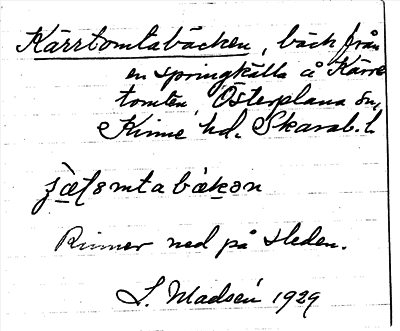 Kärrtomtabäcken, bäck från
en springkälla å Kärr-
tomten, Österplana sn,
Kinne hd. Skarab. l.
Rinner ned på sleden.
S. Madsén 1929